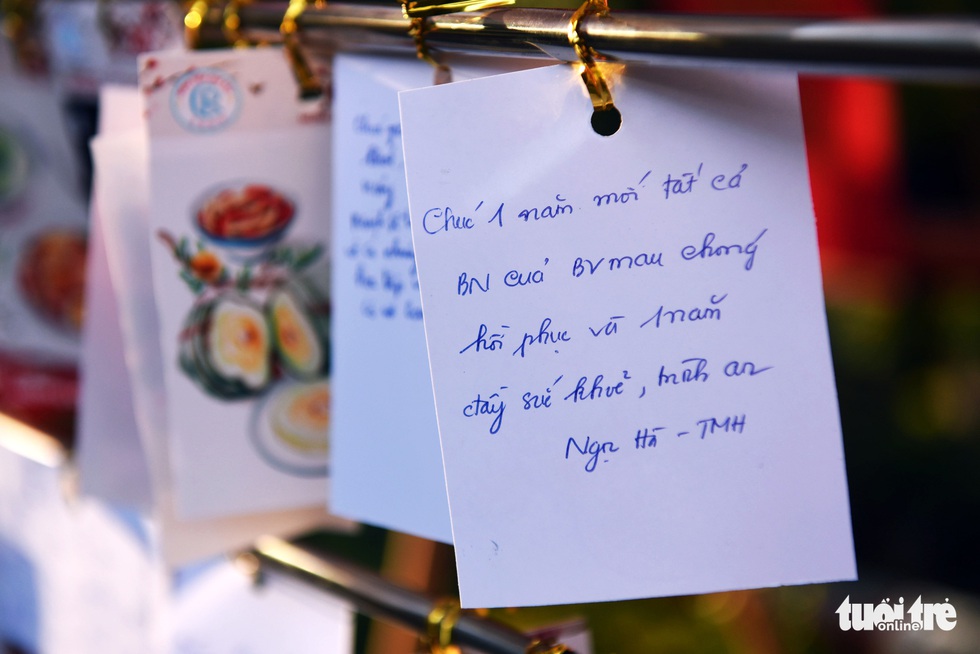 Chúc 1 năm mới tất cả
BN của BV mau chóng
hồi phục và 1 năm
đầy sức khoẻ, bình an
Ngọc Hà - TMH
tuổi trẻ
online